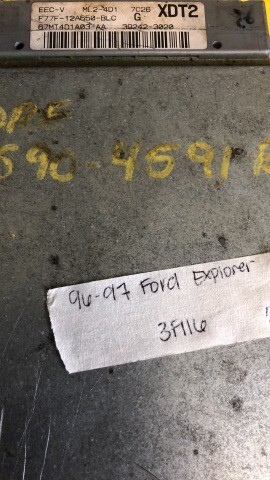 EEC-V ML2-4D1 7C26 XDT2
F77F-12A650-BLC G
67MT4D1A03 AA 39242-3020
590-4591 R
96-97 Ford Explorer
3F116